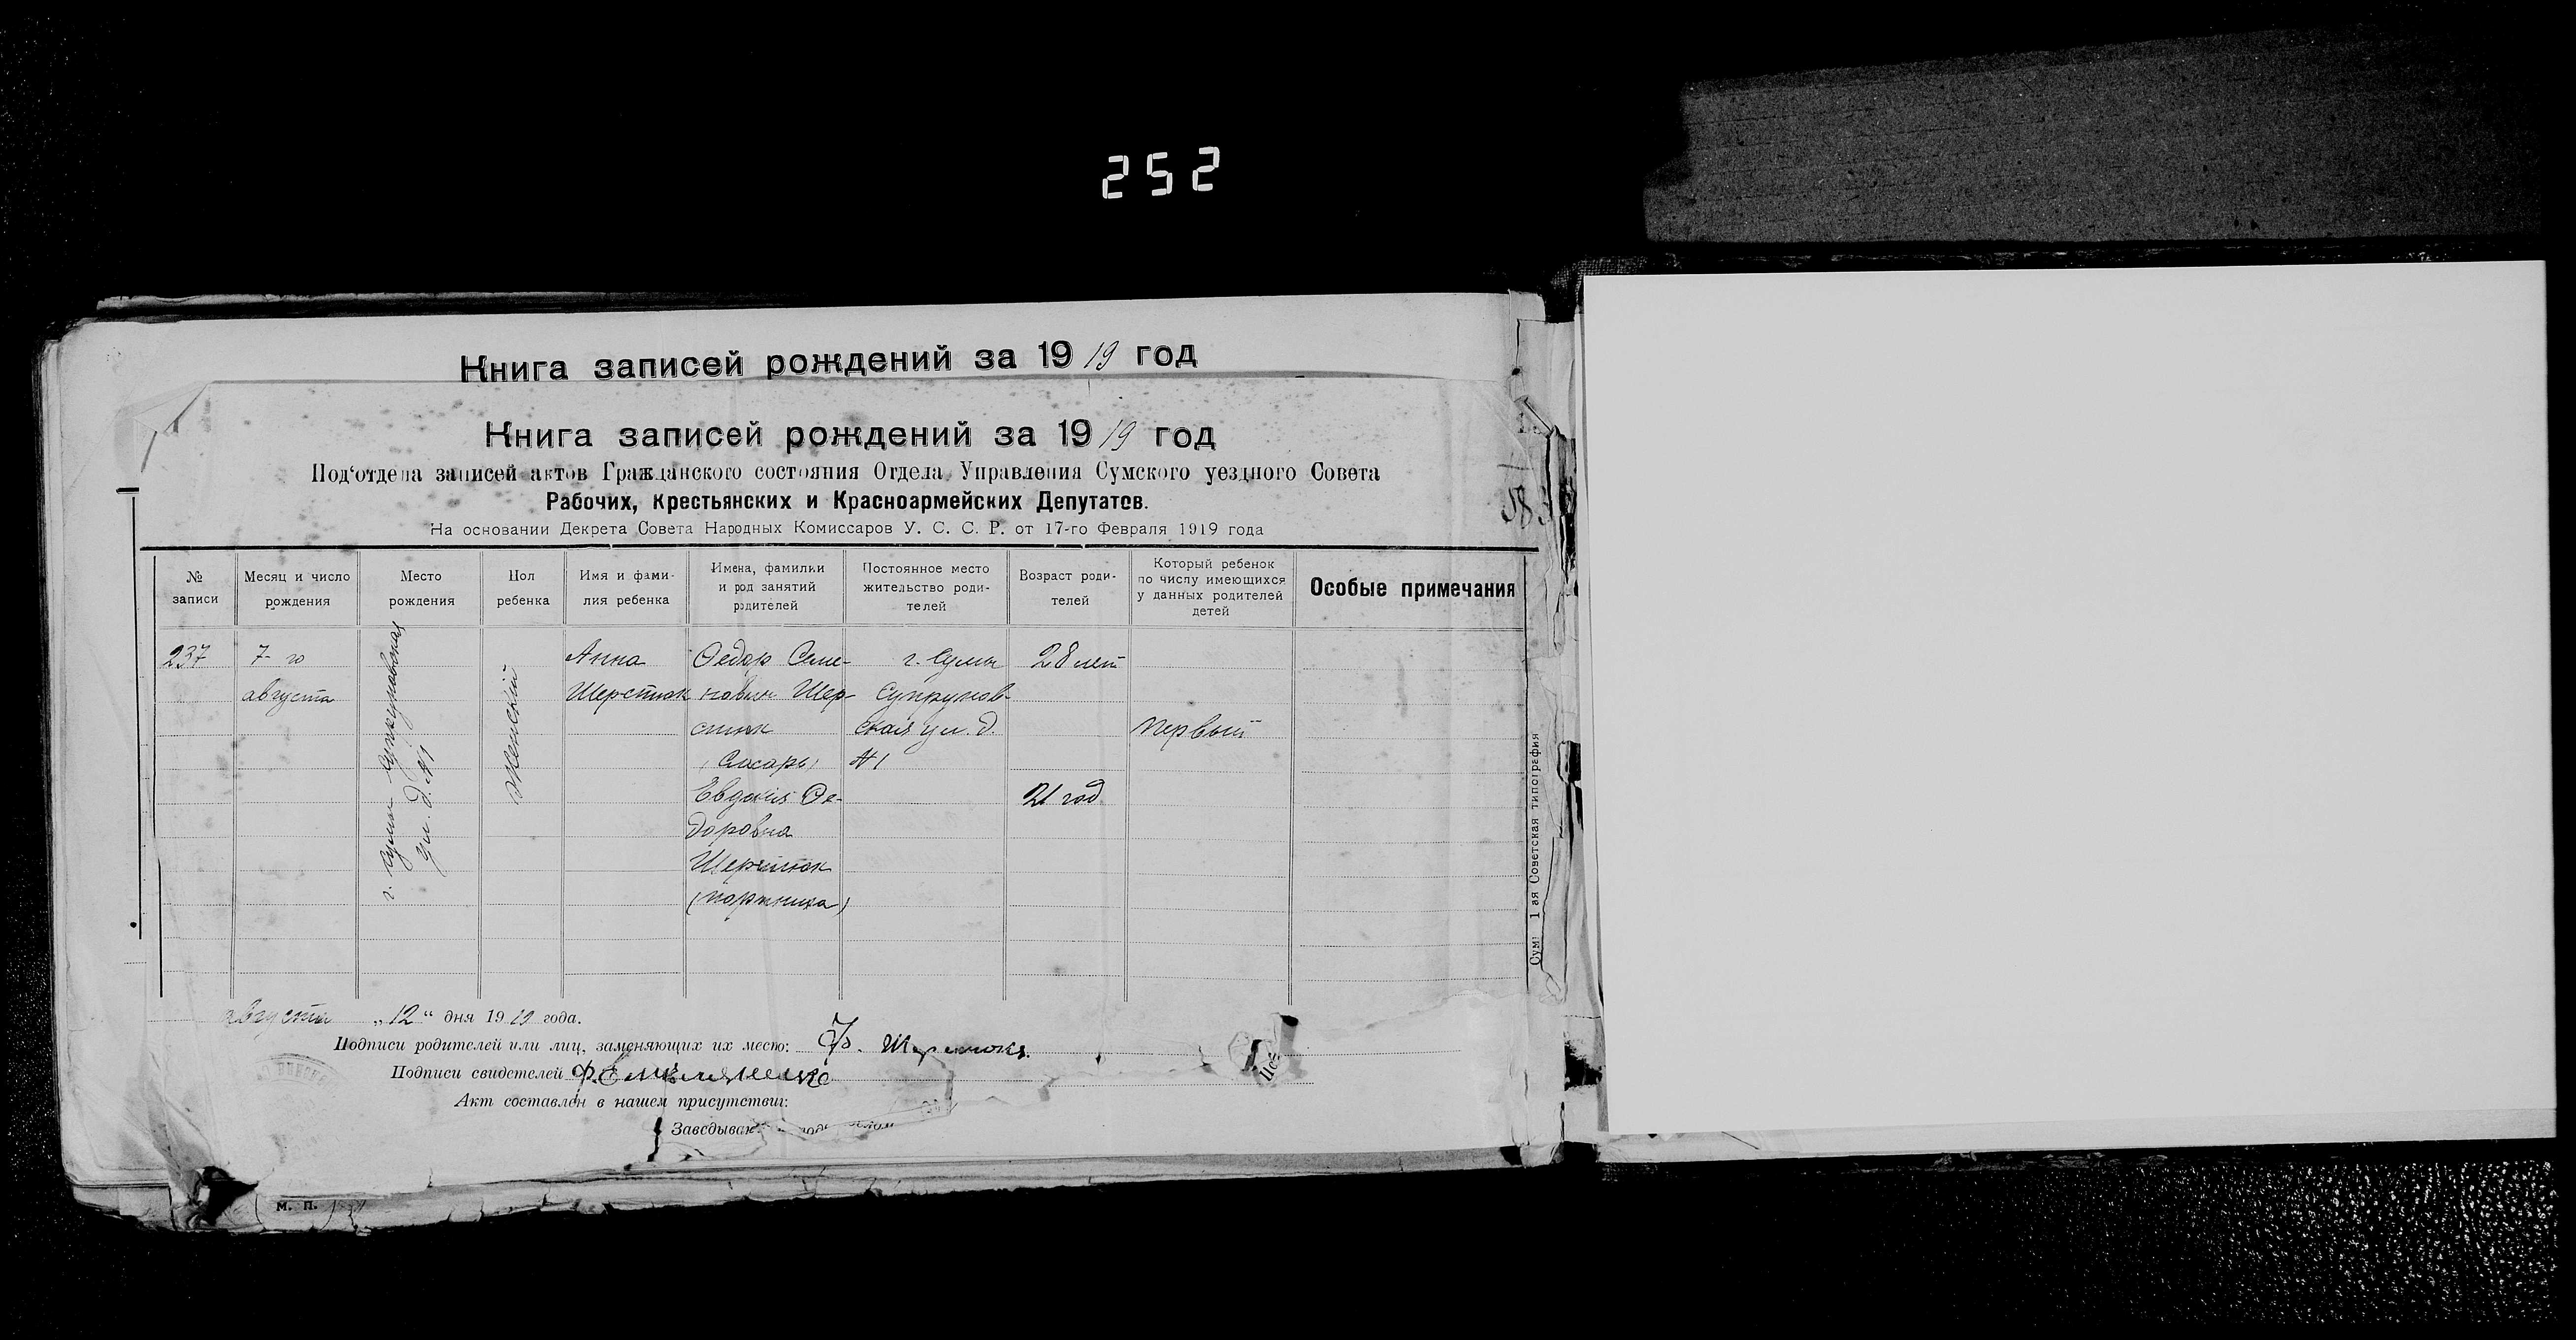 252
Книга записей рождений за 1919 год
Книга записей рождений за 1919 год
Под‘отдела записей актов Гражданского состояния Отдела Управления Сумского уездного Совета
Рабочих, Крестьянских и Красноармейских Депутатов.
На основании Декрета Совета Народных Комиссаров У. С. С. Р. от 17-го Февраля 1919 года
№ записи
Месяц и число рождения
Место рождения
Пол ребенка
Имя и фамилия ребенка
Имена, фамилии и род занятий родителей
Постоянное место жительство родителей
Возраст родителей
Который ребенок по числу имеющихся у данных родителей детей
Особые примечания
237
7-го
августа
г. Сумы Супруновская
ул. д. №1
Женский
Анна
Шерстюк
Федор Семе-
нович Шер-
стюк
(Слесарь)
Евдокия Фе-
доровна
Шерстюк
(портниха)
г. Сумы
Супрунов-
ская ул. д.
№1
28 лет
21 год
Первый
августа „12“ дня 1919 года.
Подписи родителей или лиц, заменяющих их место: Ф. Шерстюкъ
Подписи свидетелей
Акт составлен в нашем присутствии:
М. П.
1-ая Советская типография